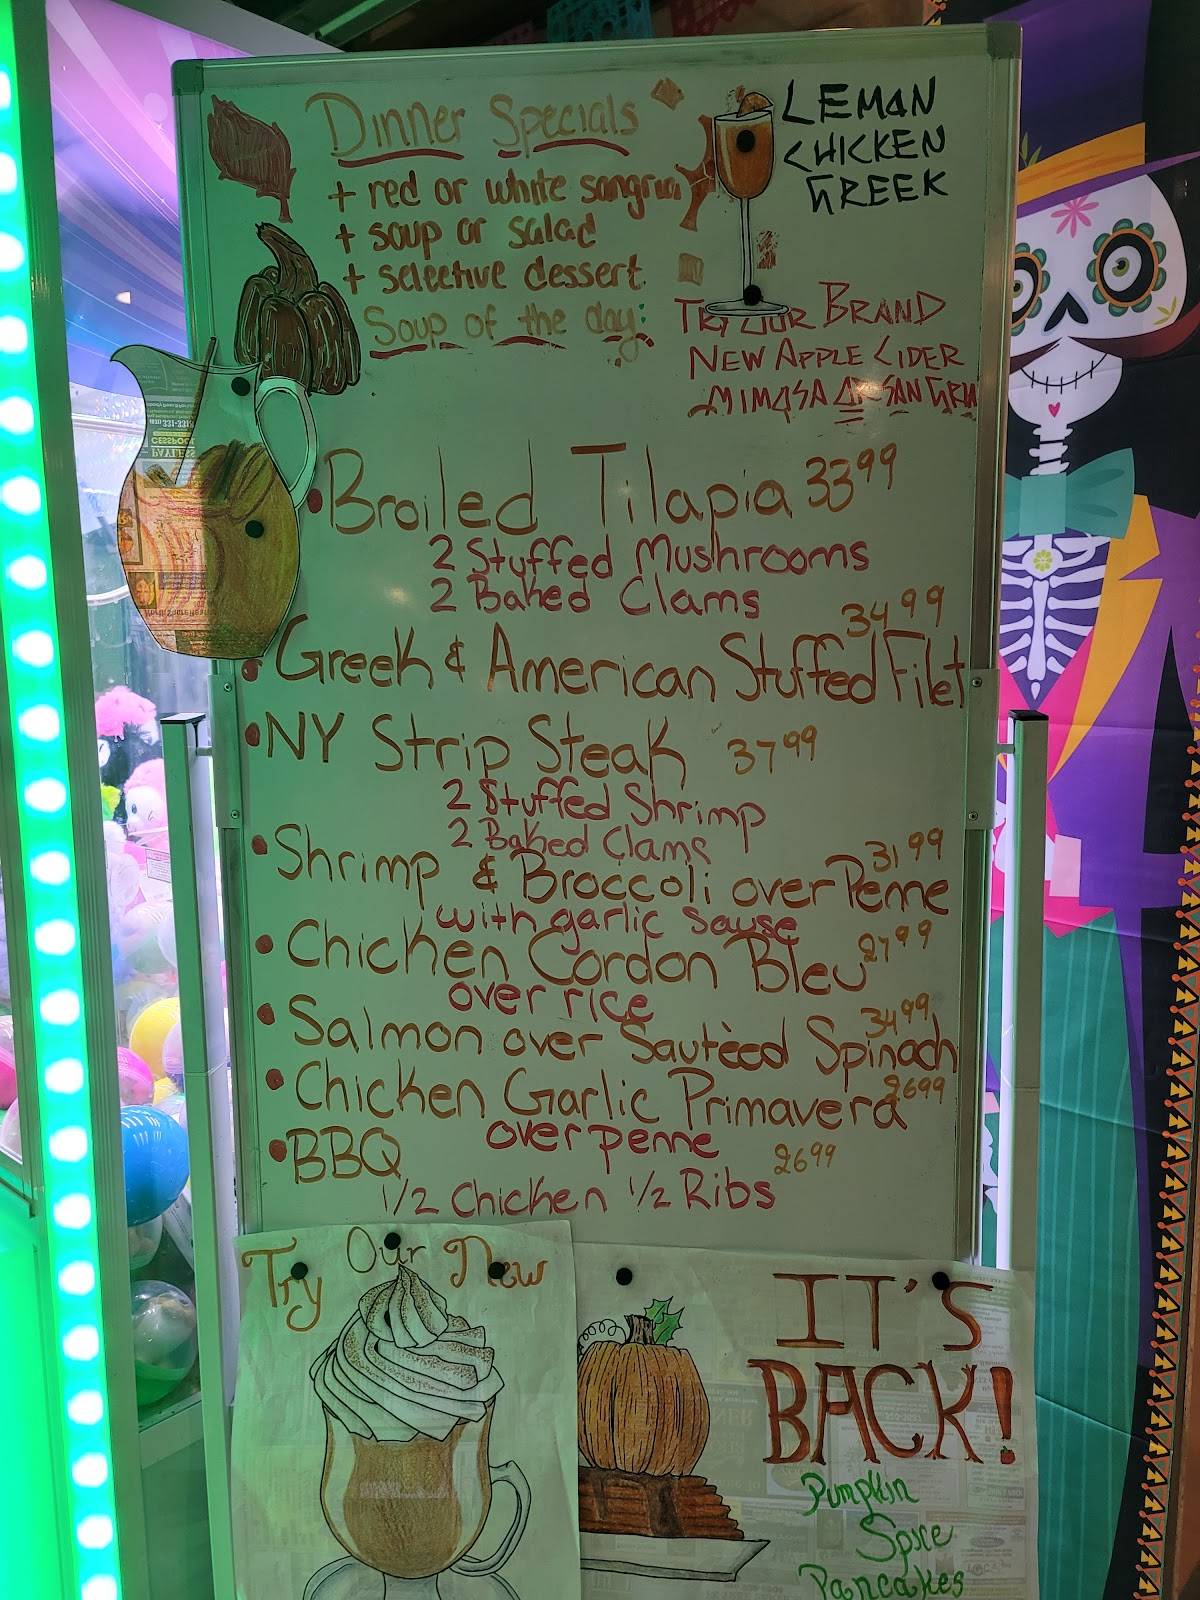 Dinner Specials
+ red or white sangria
+ soup or salad
+ selective dessert
Soup of the day:
LEMAN
CHICKEN
GREEK
TRY OUR BRAND
NEW APPLE CIDER
MIMOSA OR SANGRIA
• Broiled Tilapia 33 99
2 Stuffed Mushrooms
2 Baked Clams
34 99
• Greek & American Stuffed Filet
• NY Strip Steak 37 99
2 Stuffed Shrimp
2 Baked Clams
31 99
• Shrimp & Broccoli over Penne
with garlic sause
• Chicken Cordon Bleu 27 99
over rice
34 99
• Salmon over Sautèed Spinach
• Chicken Garlic Primavera 26 99
over penne
• BBQ 26 99
1/2 Chicken 1/2 Ribs
Try Our New
IT'S
BACK!
Pumpkin
Spice
Pancakes